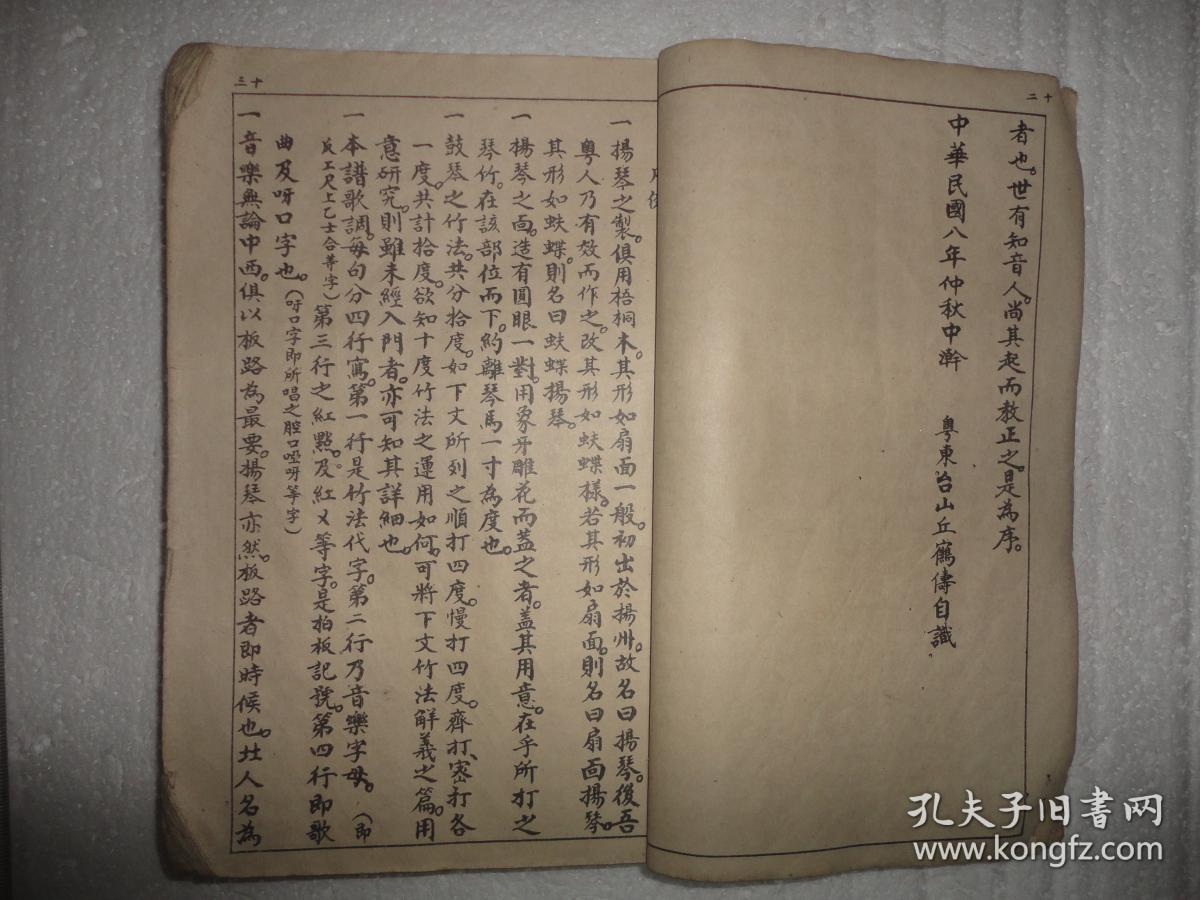 十二
者也。世有知音人。尚其起而教正之。是為序。
中華民國八年仲秋中澣
粤東台山丘鶴儔自識
十三
一揚琴之製。俱用梧桐木。其形如扇面一般。初出於揚州。故名曰揚琴。後吾
粤人乃有效而作之。改其形如蚨蝶樣。若其形如扇面。則名曰扇面揚琴。
其形如蚨蝶。則名曰蚨蝶揚琴。
一揚琴之面。造有圓眼一對。用象牙雕花而蓋之者。蓋其用意。在乎所打之
琴竹。在該部位而下。約離琴馬一寸為度也。
一鼓琴之竹法。共分拾度。如下文所列之順打四度。慢打四度。齊打、密打各
一度。共計拾度。欲知十度竹法之運用如何。可將下文竹法解義之篇。用
意研究。則雖未經入門者。亦可知其詳細也。
一本譜歌調。每句分四行寫。第一行是竹法代字。第二行乃音樂字母。（即
反工尺上乙士合等字）第三行之紅點。及紅乂等字。是拍板記號。第四行即歌
曲及呀口字也。（呀口字即所唱之腔口啞呀等字）
一音樂無論中西。俱以板路為最要。揚琴亦然。板路者即時候也。壯人名為
孔夫子旧书网
www.kongfz.com